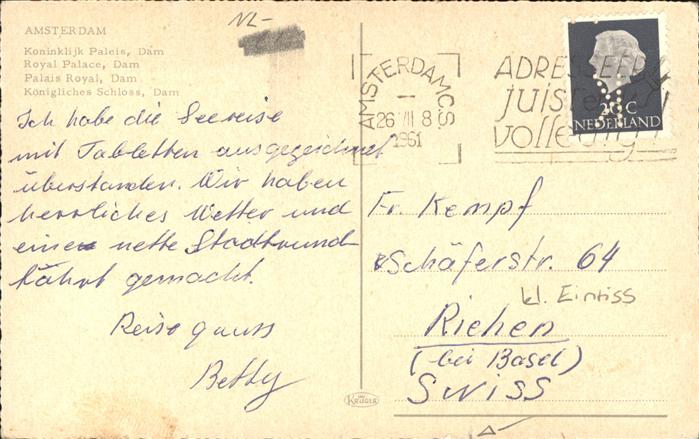 NL-
AMSTERDAM
Koninklijk Paleis, Dam
Royal Palace, Dam
Palais Royal, Dam
Königliches Schloss, Dam
Ich habe die Seereise
mit Tabletten ausgezeichnet
überstanden. Wir haben
herrliches Wetter und
eine nette Stadtrund
fahrt gemacht.
Betty
AMSTERDAM C.S.
26 VII 8
1961
ADRESSEER
juist en
volledig
20 C
NEDERLAND
Fr. Kempf
Schäferstr. 64
kl. Einriss
Riehen
(bei Basel)
Swiss
KRÜGER